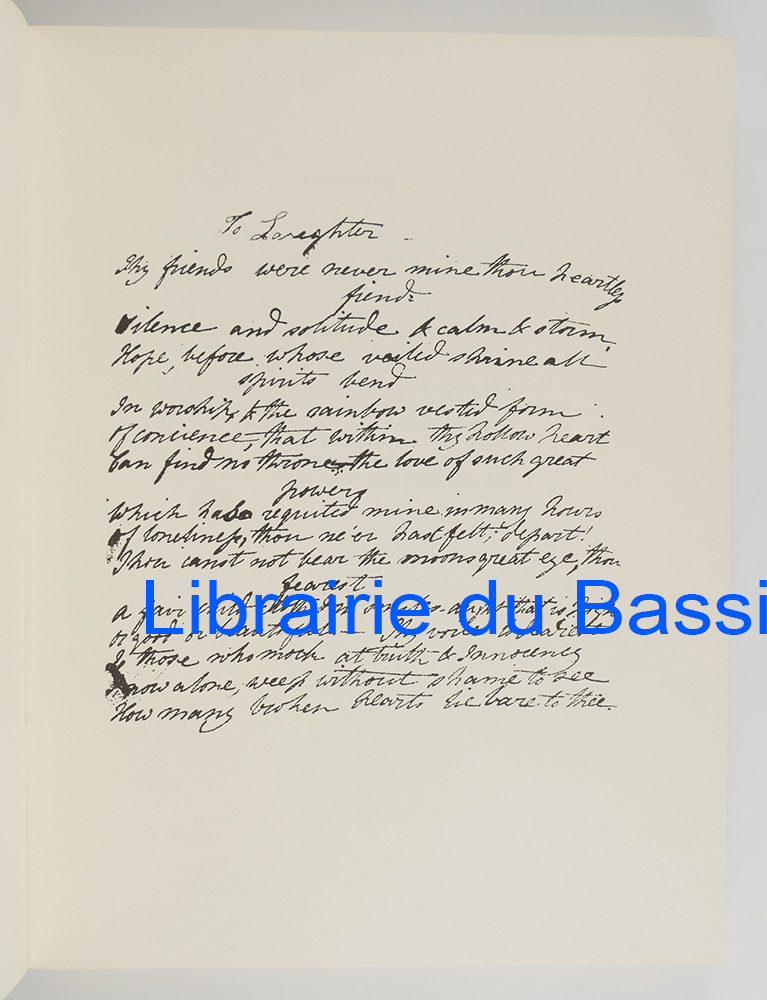 To Laughter
Thy friends were never mine thou heartless
fiend:
Silence and solitude & calm & storm,
Hope, before whose veiled shrine all
spirits bend
In worship, & the rainbow vested form
Of concience, that within thy hollow heart
Can find no throne—the love of such great
powers
Which has requited mine in many hours
Of loneliness, thou ne'er hast felt; depart!
Thou canst not bear the moons great eye, thou
fearest
A fair child
or good or beautiful — Thy voice is dearest
To those who mock at truth & Innocency
I now alone, weep without shame to see
How many broken hearts lie bare to thee.
Librairie du Bassi